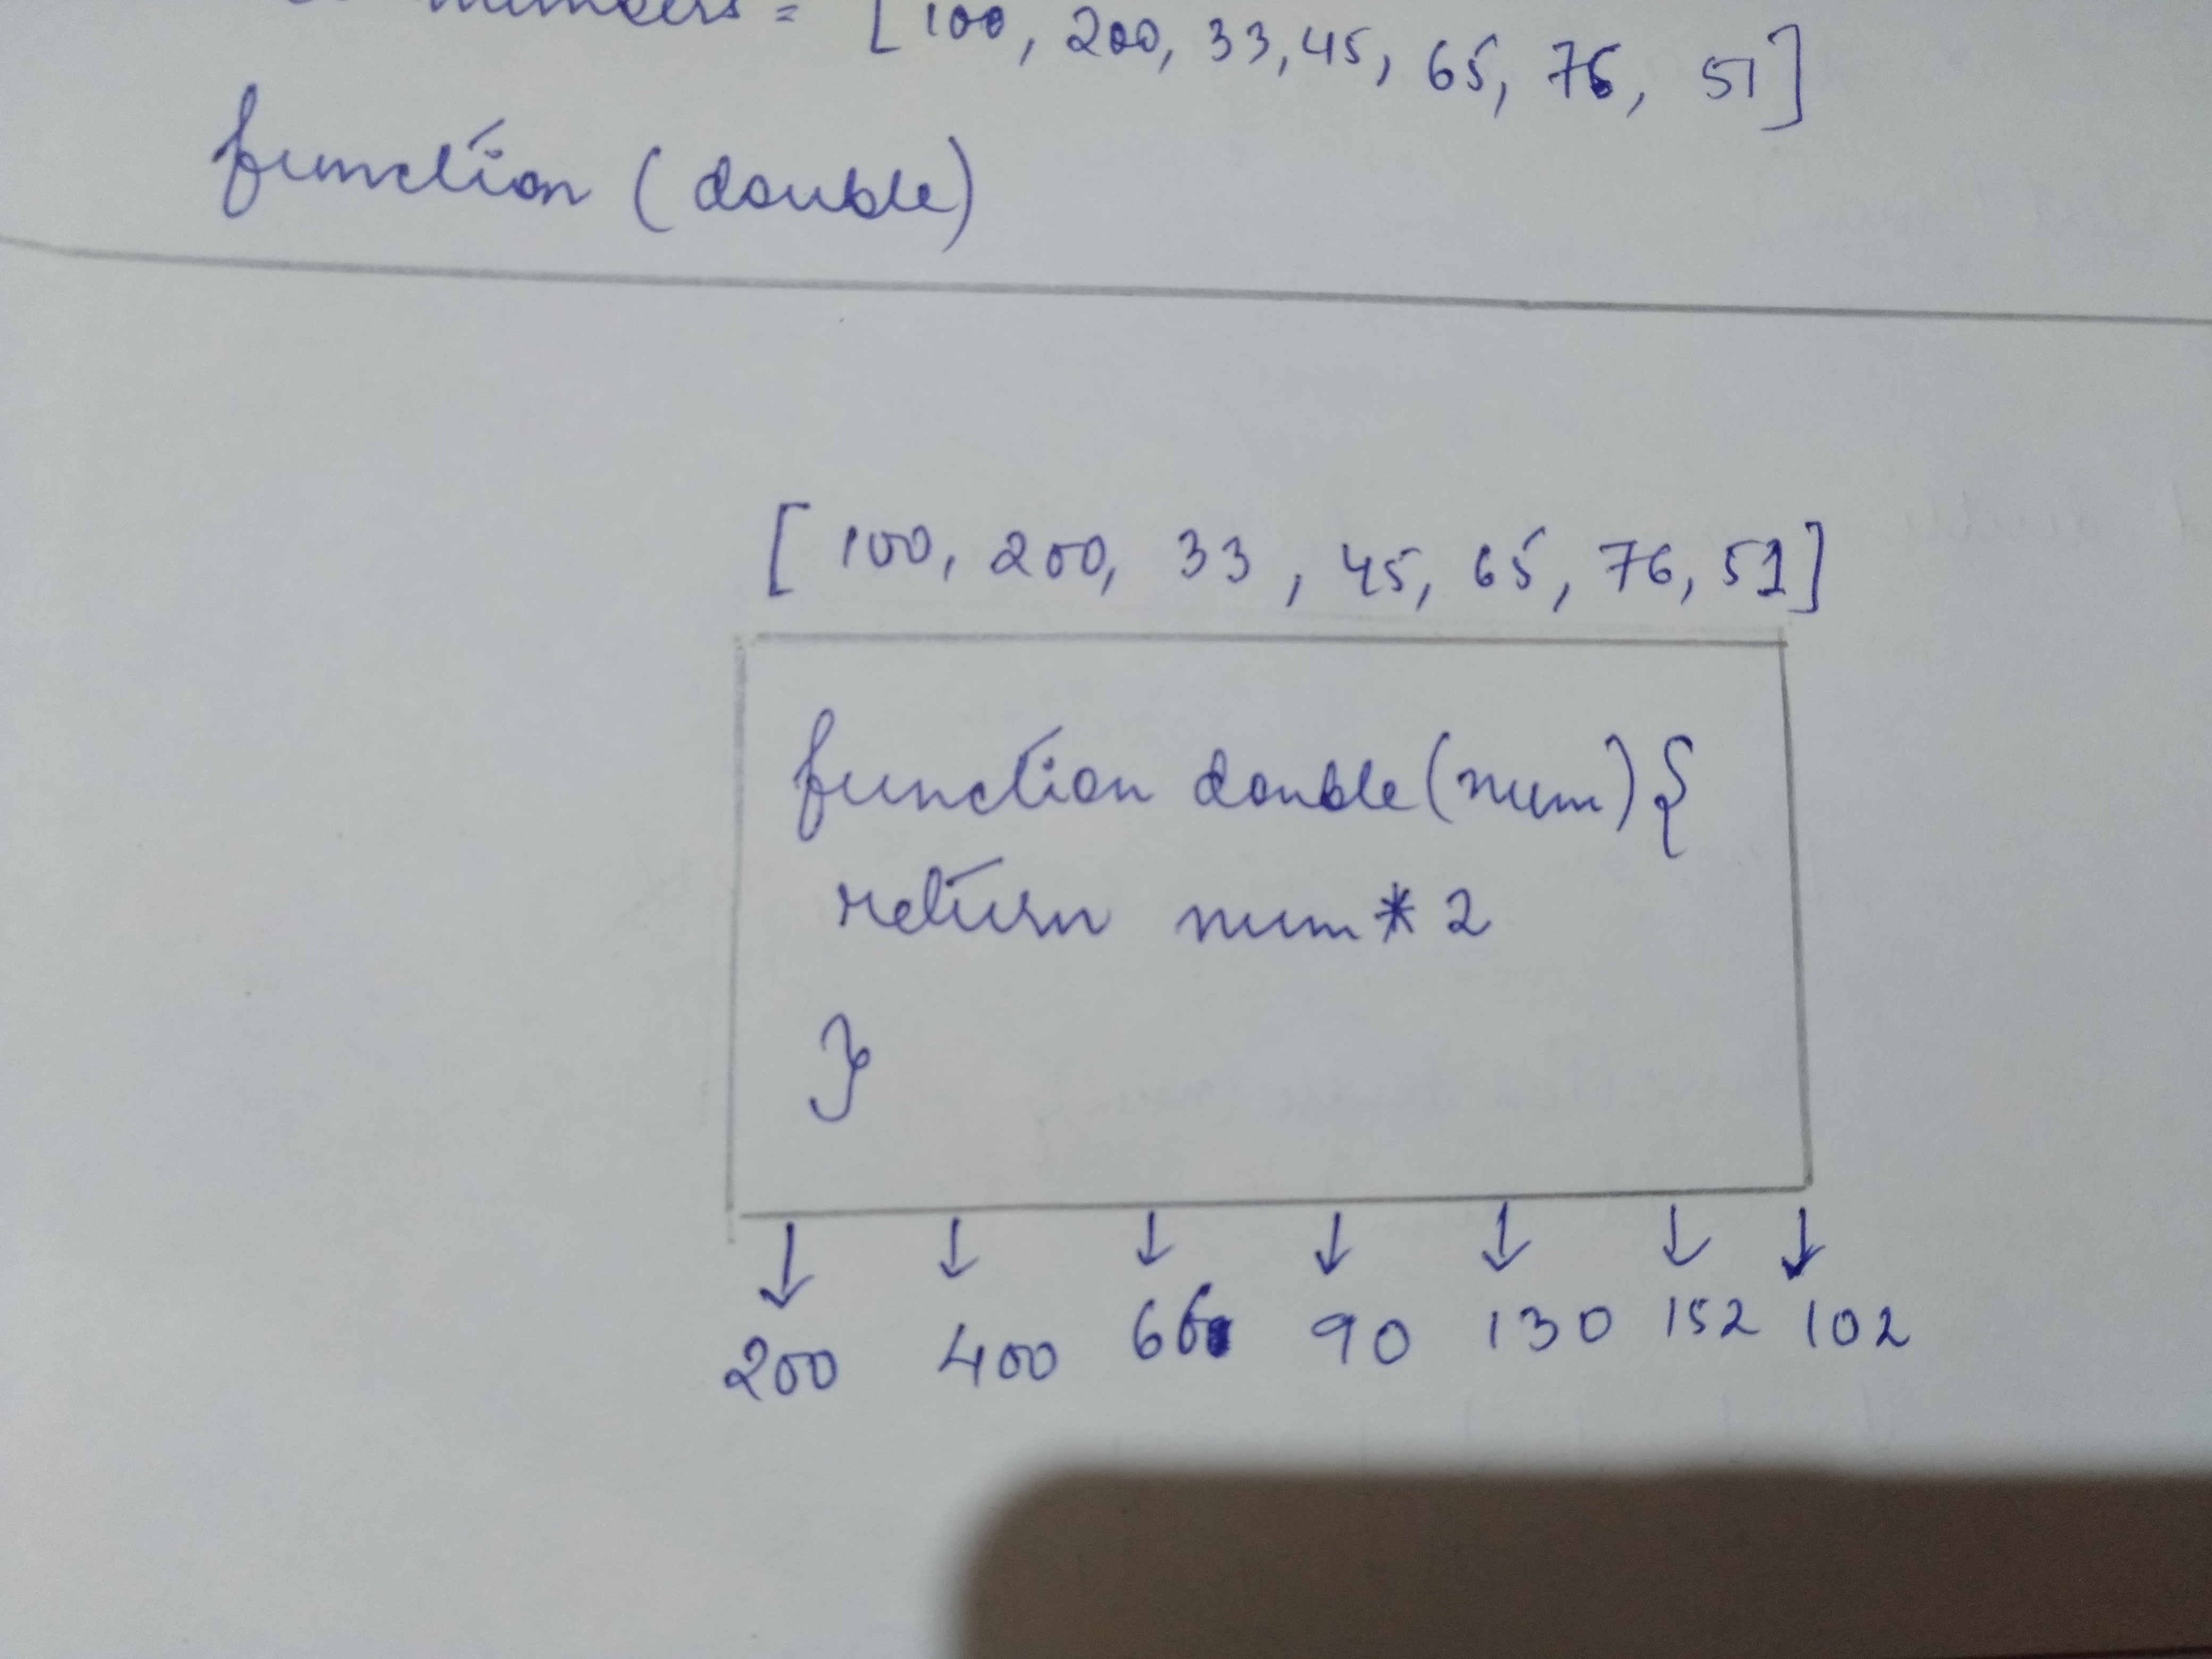 numbers = [100, 200, 33, 45, 65, 76, 51]
function (double)
[100, 200, 33, 45, 65, 76, 51]
function double(num){
return num * 2
}
↓ ↓ ↓ ↓ ↓ ↓ ↓
200 400 66 90 130 152 102